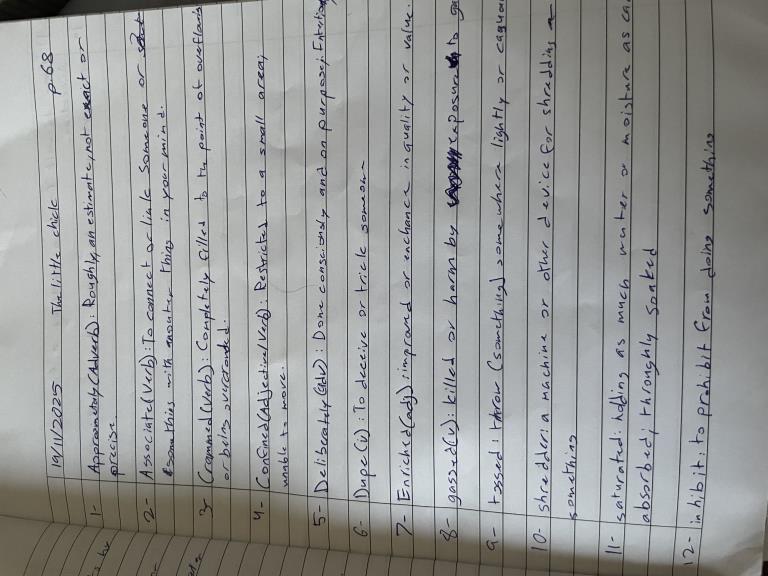 19/11/2025 The little chick p.68
1- Approximately (Adverb): Roughly, an estimate, not exact or
precise.
2- Associate (Verb): To connect or link someone or
something with another thing in your mind.
3- Crammed (Verb): Completely filled to the point of overflowing
or being overcrowded.
4- Confined (Adjective/Verb): Restricted to a small area;
unable to move.
5- Deliberately (adv): Done consciously and on purpose;
6- Dupe (v): To deceive or trick someone
7- Enriched (adj): improved or enchance in quality or value.
8- gassed (v): killed or harm by exposure to
9- tossed: throw (something) somewhere lightly or
10- shredder: a machine or other device for shredding
something
11- saturated: holding as much water or moisture as
absorbed; throughly soaked
12- inhibit: to prohibit from doing something